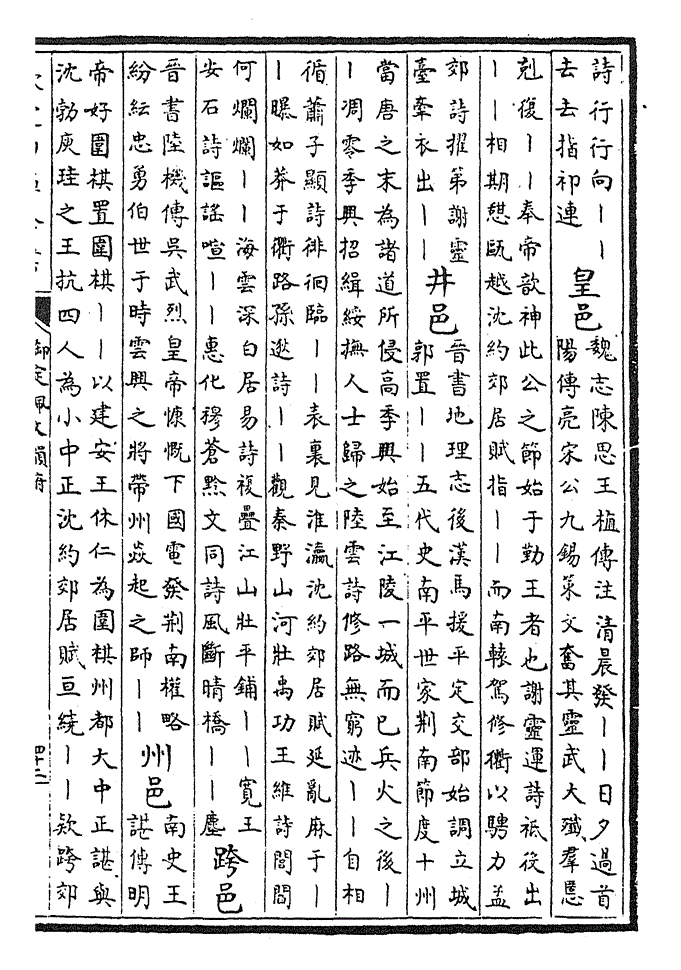 詩行行向｜｜
去去指祁連
皇邑
魏志陳思王植傳注清晨發｜｜日夕過首
陽傳亮宋公九錫策文奮其靈武大殲羣慝
剋復｜｜奉帝歆神此公之節始于勤王者也謝靈運詩祗役出
｜｜相期憇甌越沈約郊居賦指｜｜而南轅駕修衢以騁力孟
郊詩擢第謝靈
臺牽衣出｜｜
井邑
晉書地理志後漢馬援平定交部始調立城
郭置｜｜五代史南平世家荆南節度十州
當唐之末為諸道所侵高季興始至江陵一城而已兵火之後｜
｜凋零季興招緝綏撫人士歸之陸雲詩修路無窮迹｜｜自相
循蕭子顯詩徘徊臨｜｜表裏見淮瀛沈約郊居賦延亂麻于｜
｜曝如莽于衢路孫逖詩｜｜觀秦野山河壯禹功王維詩閭閻
何爛爛｜｜海雲深白居易詩複疊江山壯平鋪｜｜寬王
安石詩謳謠喧｜｜惠化穆蒼黔文同詩風斷晴橋｜｜塵
跨邑
晉書陸機傳吳武烈皇帝慷慨下國電發荆南權略
紛紜忠勇伯世于時雲興之將帶州焱起之師｜｜
州邑
南史王
諶傳明
帝好圍棋置圍棋｜｜以建安王休仁為圍棋州都大中正諶與
沈勃庾珪之王抗四人為小中正沈約郊居賦亘繞｜｜欵跨郊
御定佩文韻府
四十二